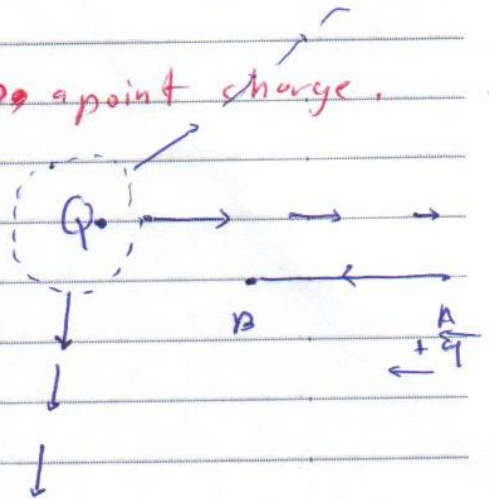 a point charge.
Q
B A
+q